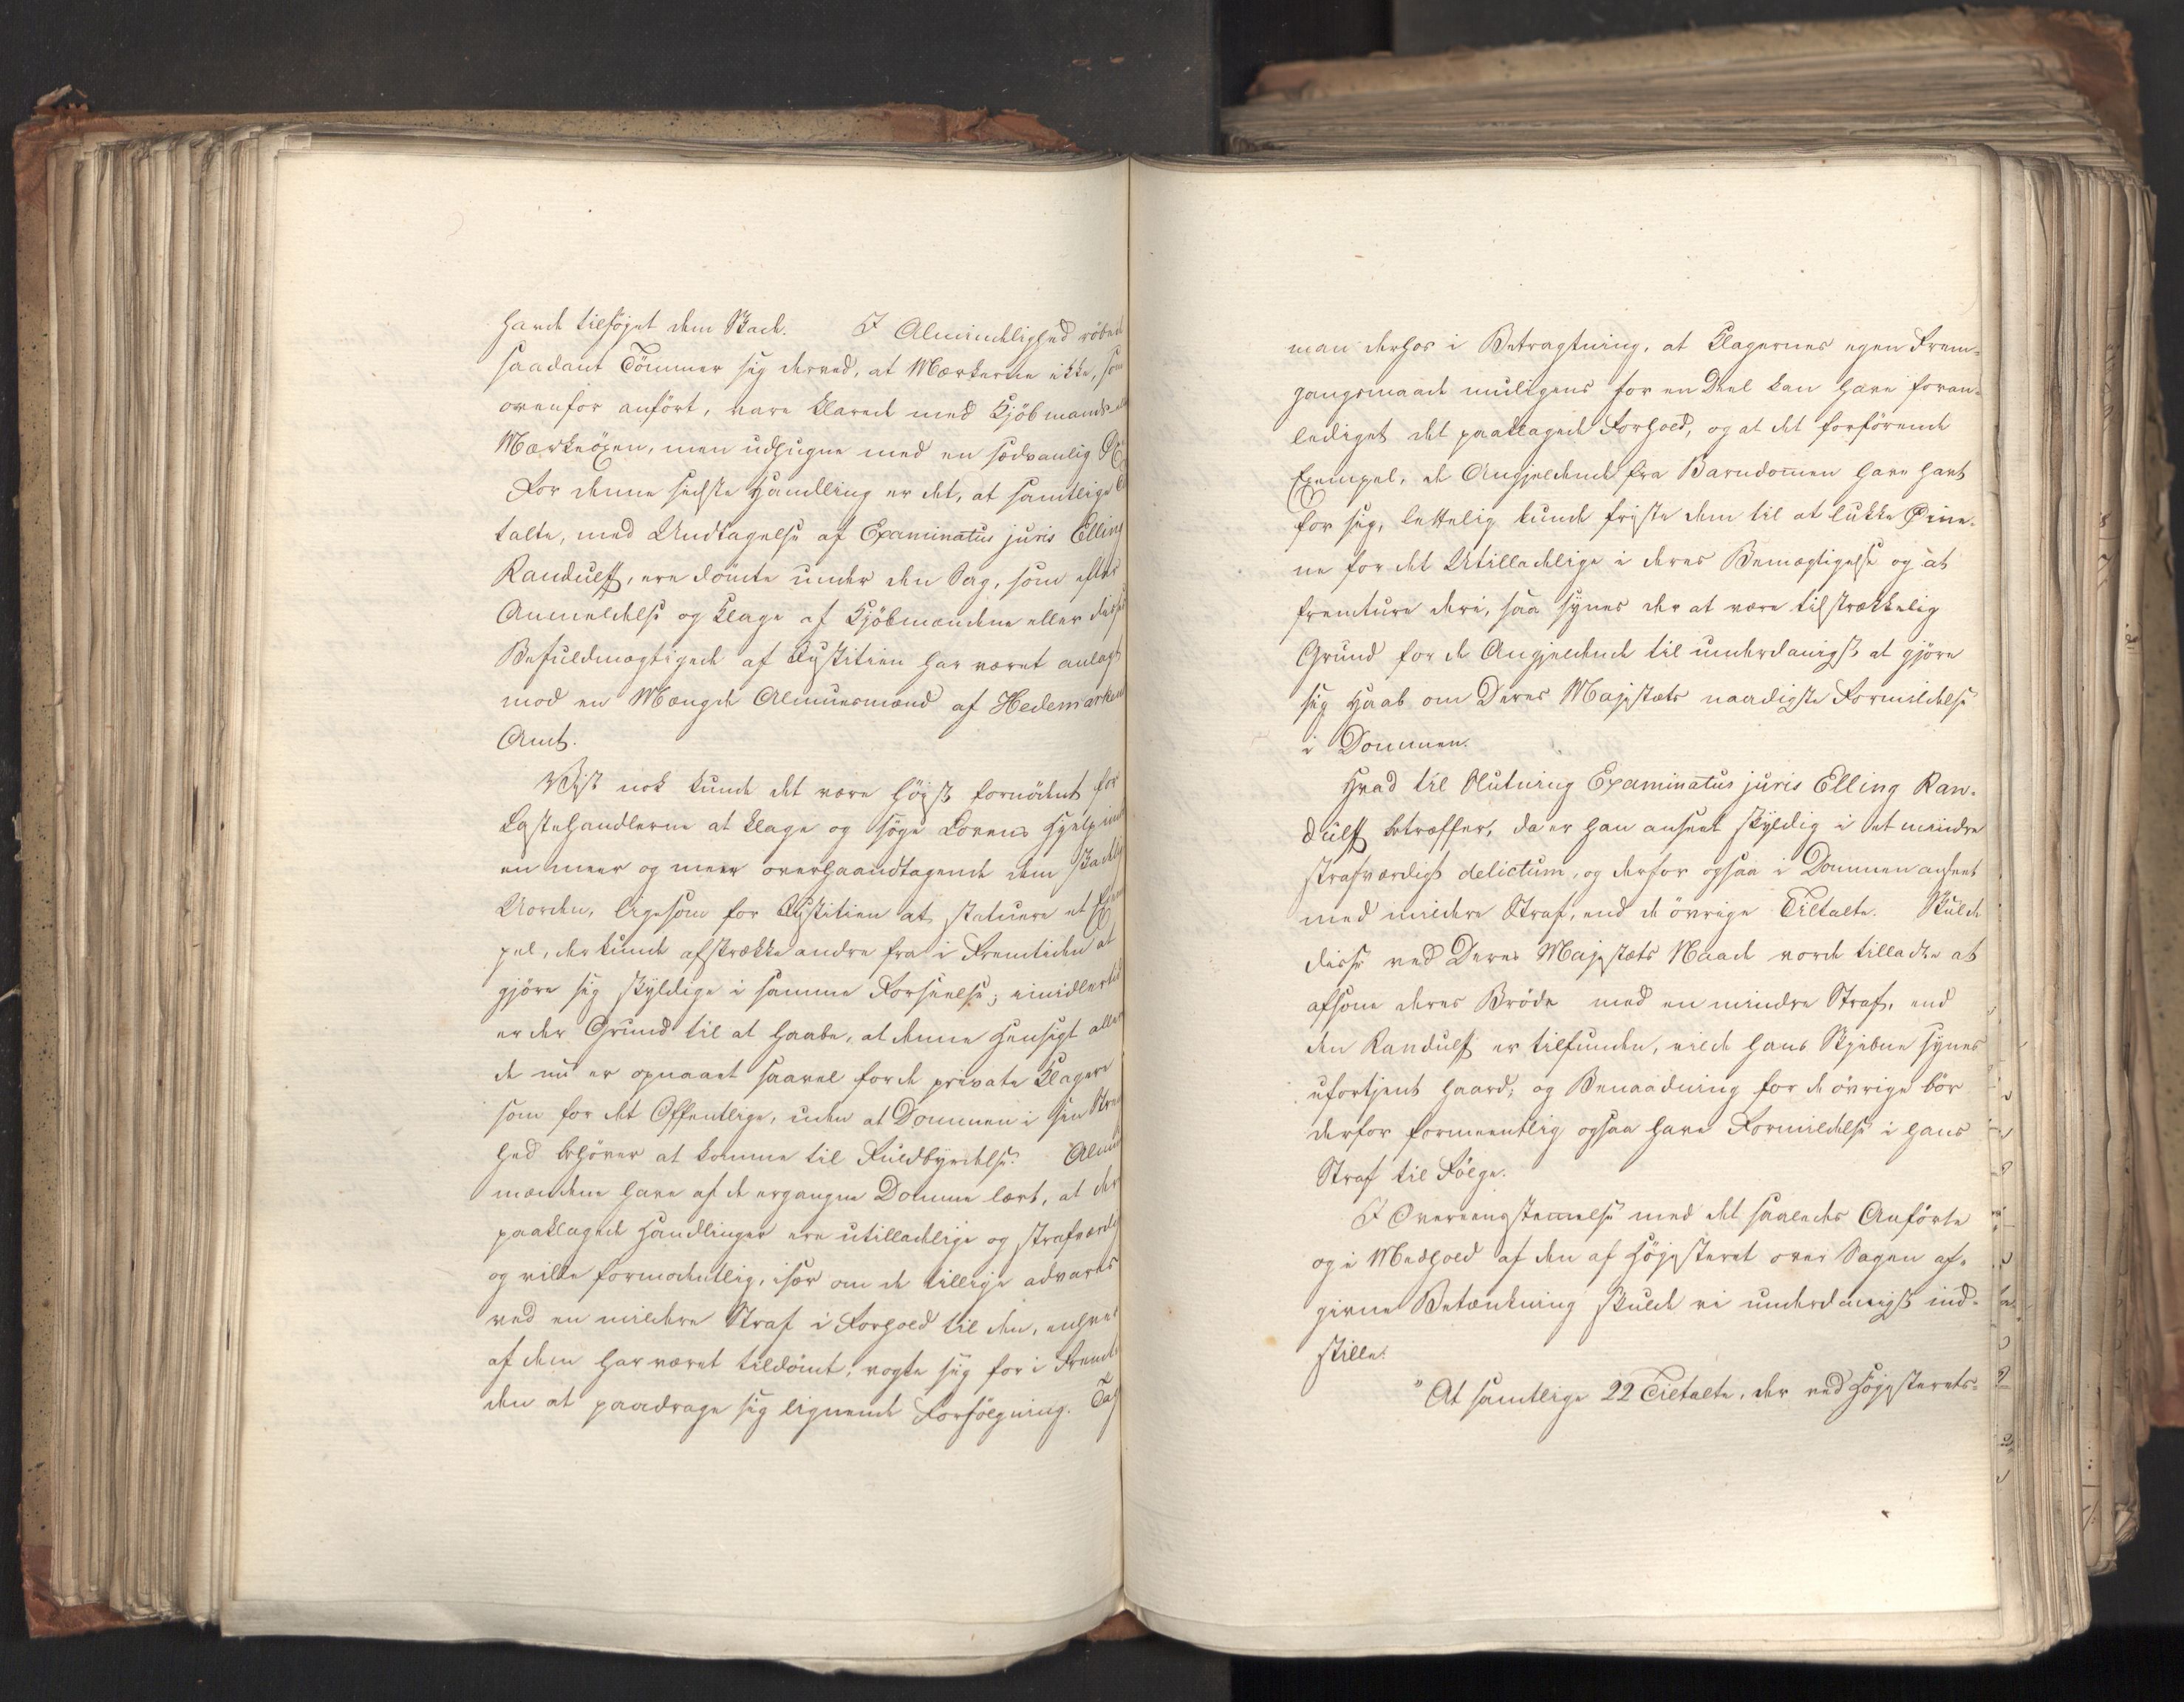 havde tilføjet dem Skade. I Almindelighed røbede
saadant Tømmer sig derved, at Mærkerne ikke, som
ovenfor anført, vare klarede med Kjøbmands
Mærkeøxen, men udhugne med en sædvanlig Øx
For denne sidste Handling er det, at samtlige
talte, med Undtagelse af Examinatus juris Elling
Randulff, ere dømte under den Sag, som efter
Anmeldelse og Klage af Kjøbmændene eller disses
Befuldmægtigede af Justitien har været anlagt
mod en Mængde Almuesmænd af Hedemarkens
Amt.
Vist nok kunde det være høist fornødent for
Lastehandlerne at klage og søge Lovens Hjelp imod
en meer og meer overhaandtagende dem skadelig
Uorden, ligesom for Justitien at statuere et Exem
pel, der kunde afskrække andre fra i Fremtiden at
gjøre sig skyldige i samme Forseelse; imidlertid
er der Grund til at haabe, at denne Hensigt aller
de nu er opnaaet saavel for de private Klagere
som for det Offentlige, uden at Dommen i sin Stræng
hed behøver at komme til Fuldbyrdelse. Almues
mændene have af de ergangne Domme lært, at de
paaklagede Handlinger ere utilladelige og strafværdige
og ville formodentlig, især om de tillige advares
ved en mildere Straf i Forhold til den, enhver
af dem har været tildømt, vogte sig for i Fremti
den at paadrage sig lignende Forfølgning. Tag
man derhos i Betragtning, at Klagernes egen Frem-
gangsmaade muligens for en Deel kan have foran-
lediget det paaklagede Forhold, og at det forførende
Exempel, de Angjeldende fra Barndommen have havt
for sig, lettelig kunde friste dem til at lukke Øine-
ne for det Utilladelige i deres Bemægtigelse og at
fremture deri, saa synes der at være tilstrækkelig
Grund for de Angjeldende til underdanigst at gjøre
sig Haab om Deres Majestæts naadigste Formildelse
i Dommen.
Hvad til Slutning Examinatus juris Elling Ran-
dulff betræffer, da er han anseet skyldig i et mindre
strafværdigt delictum, og derfor ogsaa i Dommen anseet
med mildere Straf, end de øvrige Tiltalte. Skulde
disse ved Deres Majestæts Naade vorde tilladte at
afsone deres Brøde med en mindre Straf, end
den Randulff er tilfunden, vilde hans Skjebne synes
ufortjent haard, og Benaadning for de øvrige bør
derfor formeentlig ogsaa have Formildelse i hans
Straf til Følge.
I Overeensstemmelse med det saaledes Anførte
og i Medhold af den af Høiesteret over Sagen af-
givne Betænkning skulde vi underdanigst ind-
stille:
"At samtlige 22 Tiltalte, der ved Høiesterets-